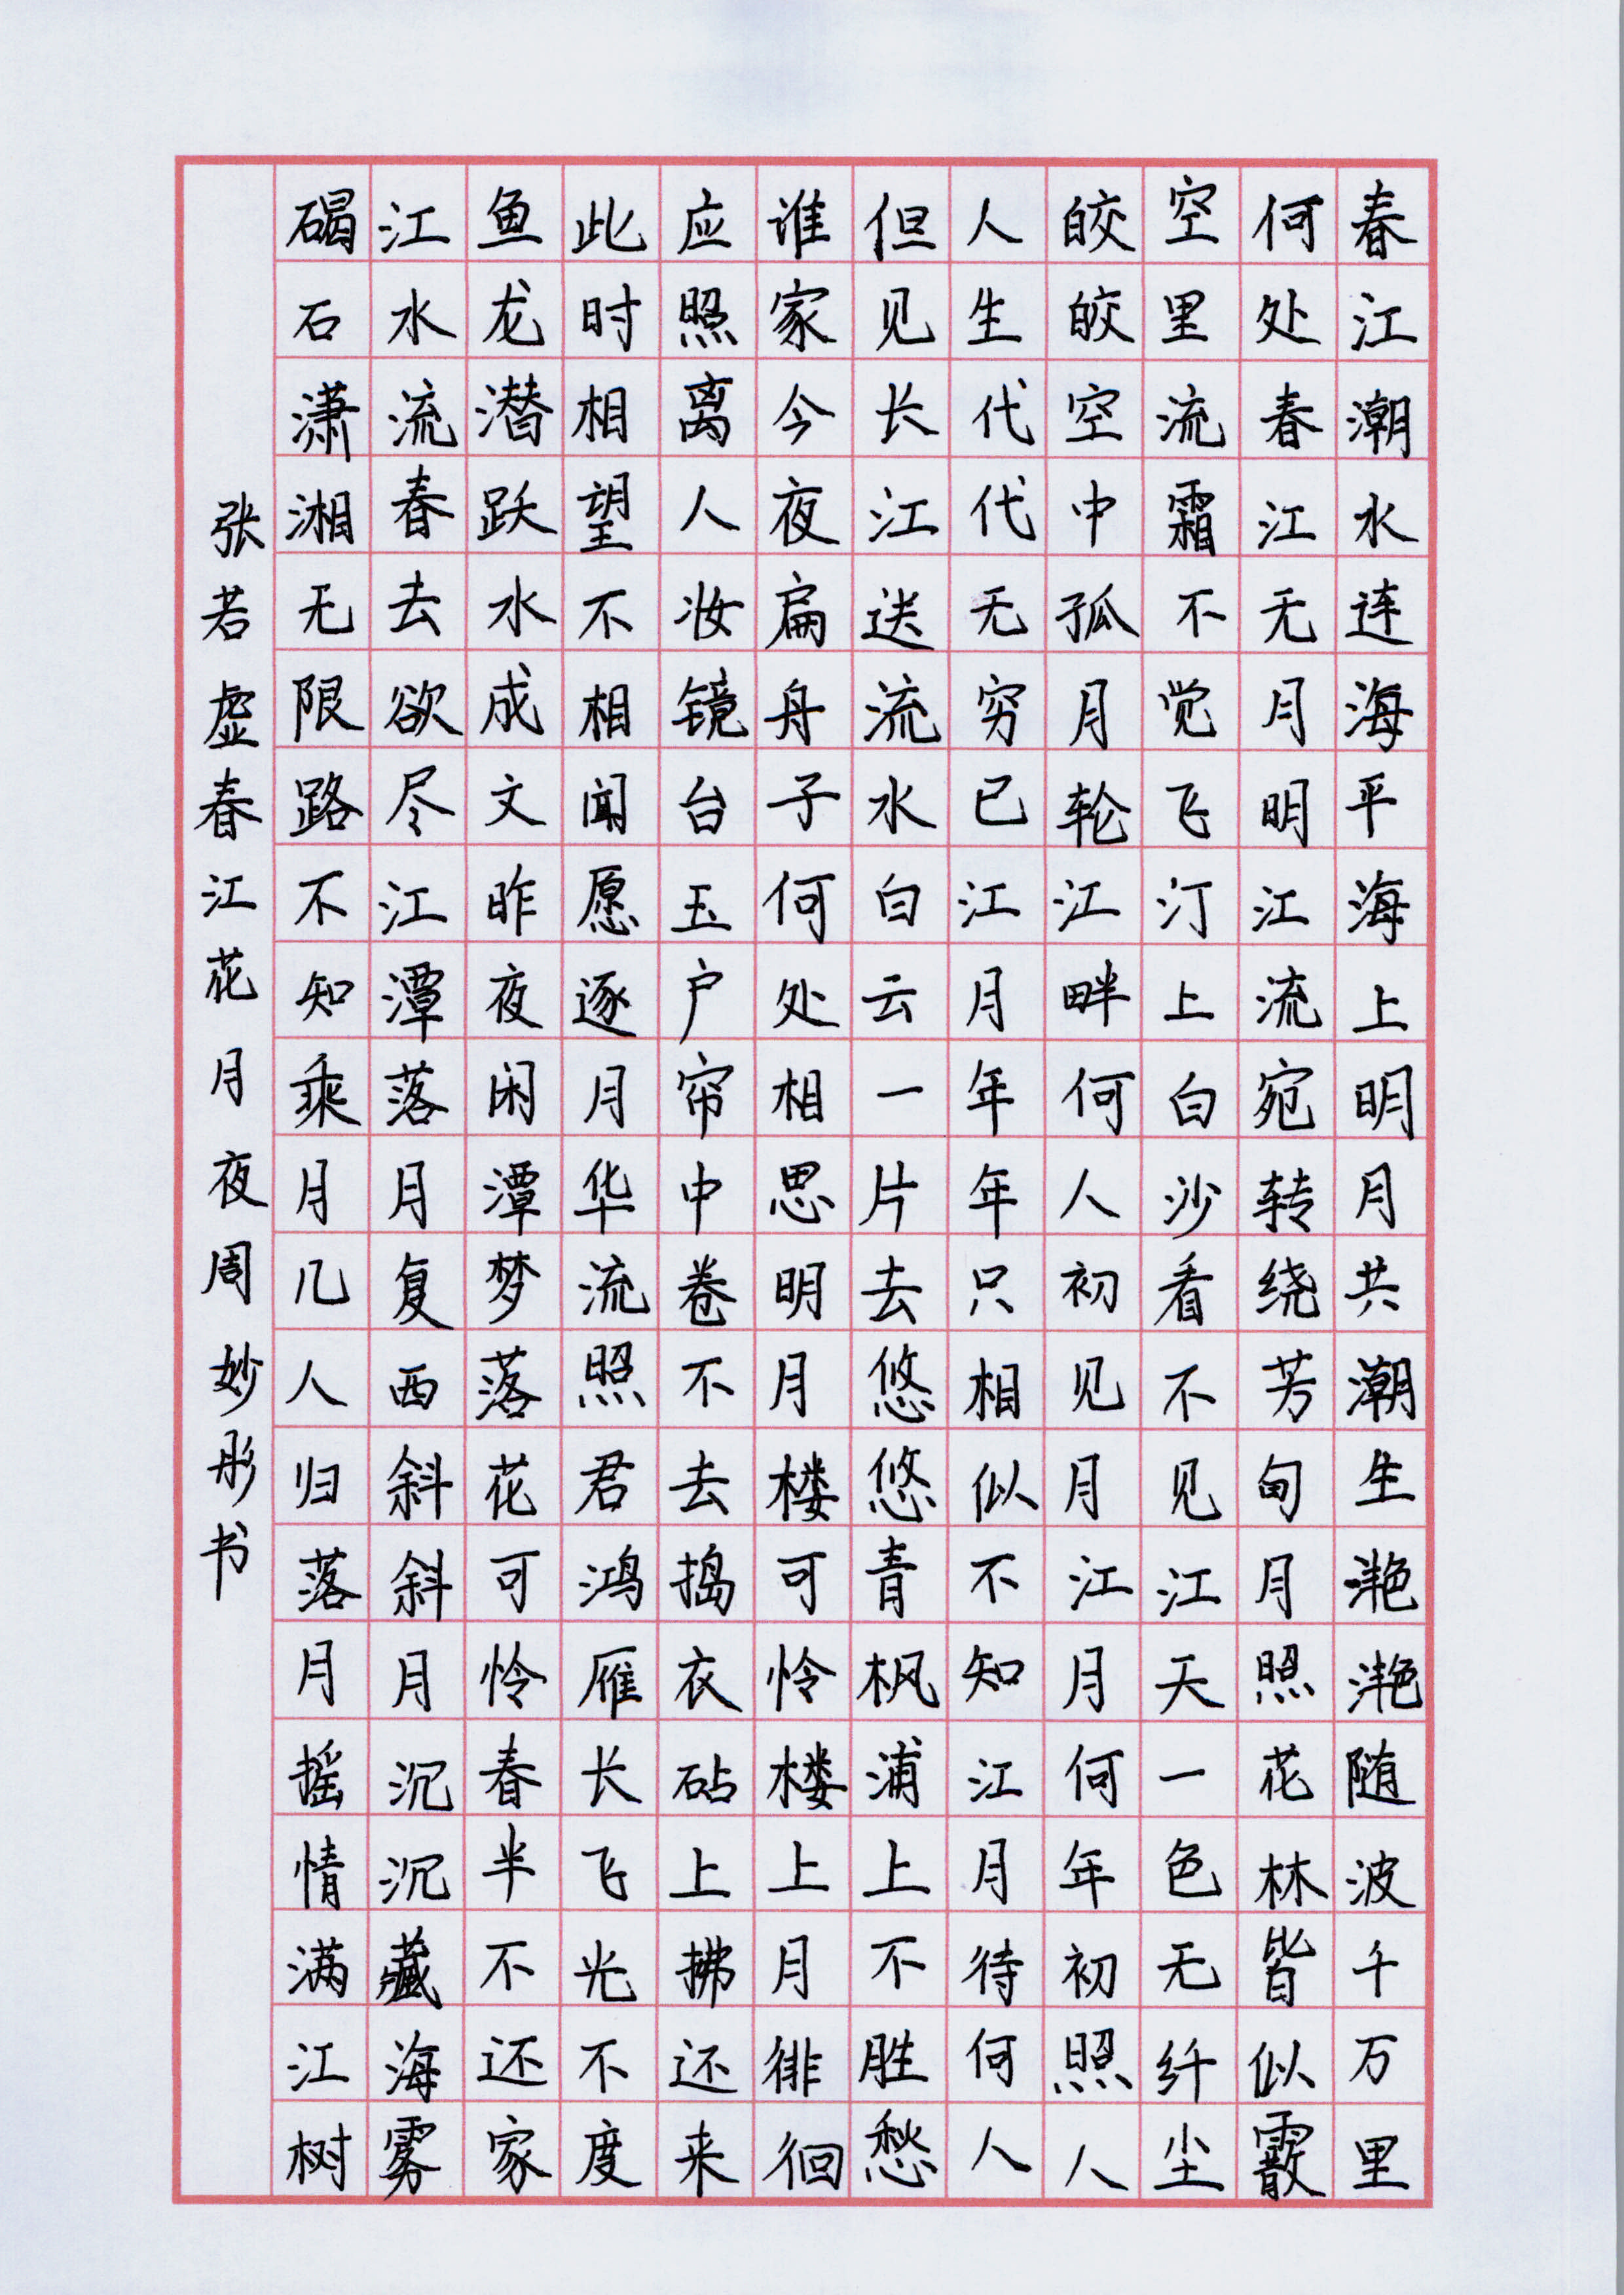 春江潮水连海平海上明月共潮生滟滟随波千万里
何处春江无月明江流宛转绕芳甸月照花林皆似霰
空里流霜不觉飞汀上白沙看不见江天一色无纤尘
皎皎空中孤月轮江畔何人初见月江月何年初照人
人生代代无穷已江月年年只相似不知江月待何人
但见长江送流水白云一片去悠悠青枫浦上不胜愁
谁家今夜扁舟子何处相思明月楼可怜楼上月徘徊
应照离人妆镜台玉户帘中卷不去捣衣砧上拂还来
此时相望不相闻愿逐月华流照君鸿雁长飞光不度
鱼龙潜跃水成文昨夜闲潭梦落花可怜春半不还家
江水流春去欲尽江潭落月复西斜斜月沉沉藏海雾
碣石潇湘无限路不知乘月几人归落月摇情满江树
张若虚春江花月夜周妙彤书